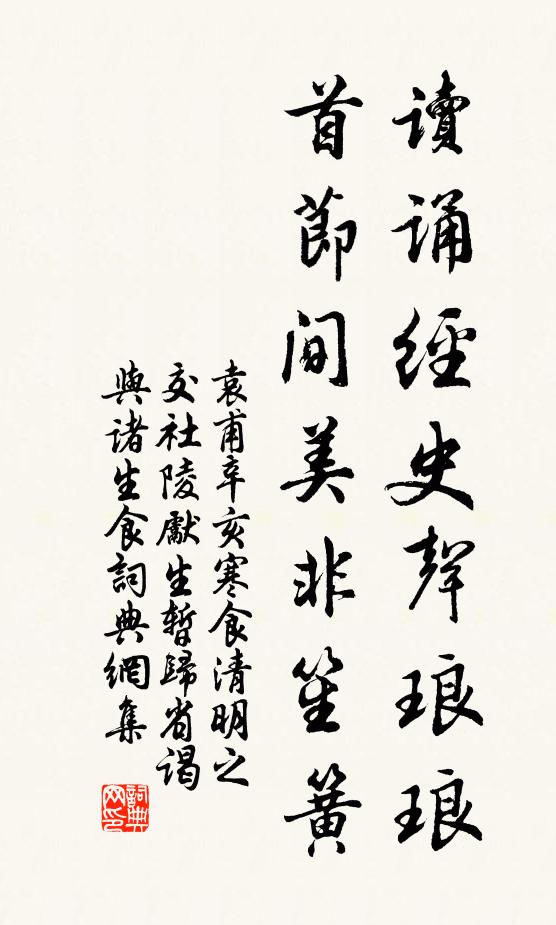 讀誦經史聲琅琅
首節間美非笙簧
袁甫辛亥寒食清明之
交社陵獻生暫歸省謁
與诸生食詞典網集
詞典网印